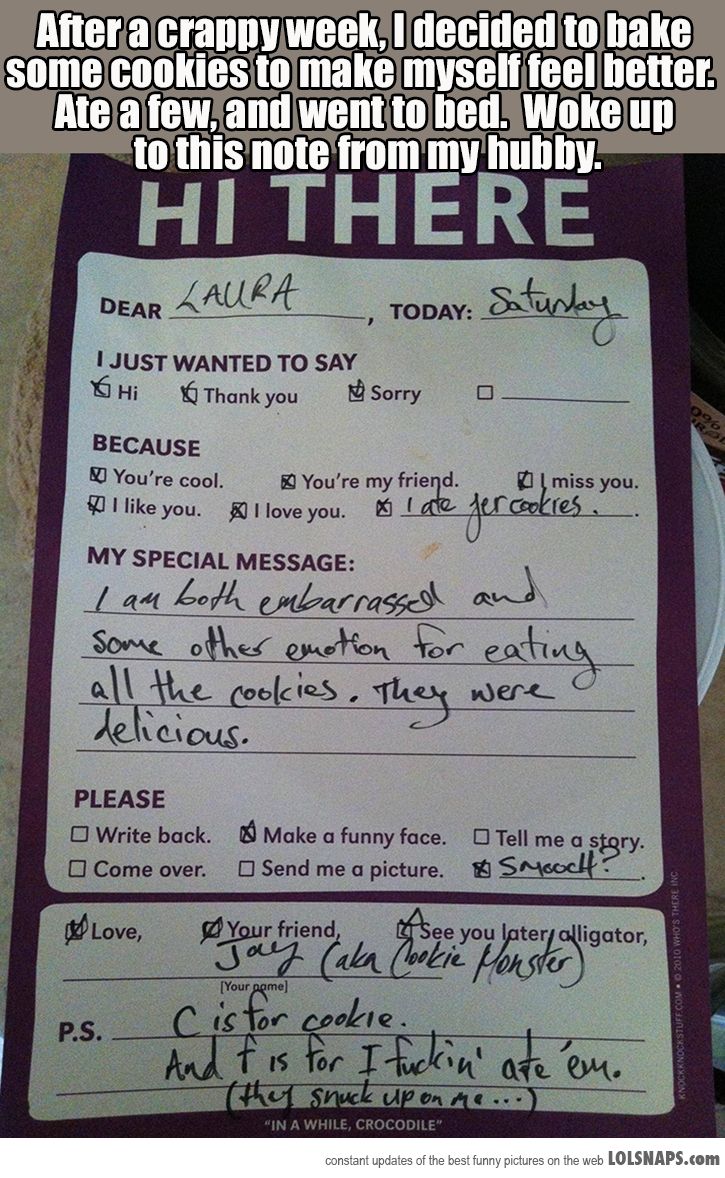 After a crappy week, I decided to bake
some cookies to make myself feel better.
Ate a few, and went to bed. Woke up
to this note from my hubby.
HI THERE
DEAR LAURA, TODAY: Saturday
I JUST WANTED TO SAY
Hi Thank you Sorry
BECAUSE
You're cool. You're my friend. I miss you.
I like you. I love you. I ate yer cookies.
MY SPECIAL MESSAGE:
I am both embarrassed and
some other emotion for eating
all the cookies. They were
delicious.
PLEASE
Write back. Make a funny face. Tell me a story.
Come over. Send me a picture. SMOOCH?
Love, Your friend, See you later, alligator,
Jay (aka Cookie Monster)
[Your name]
P.S. C is for cookie.
And f is for I fuckin' ate 'em.
(they snuck up on me...)
"IN A WHILE, CROCODILE"
KNOCKKNOCKSTUFF.COM • © 2010 WHO'S THERE INC
constant updates of the best funny pictures on the web LOLSNAPS.com